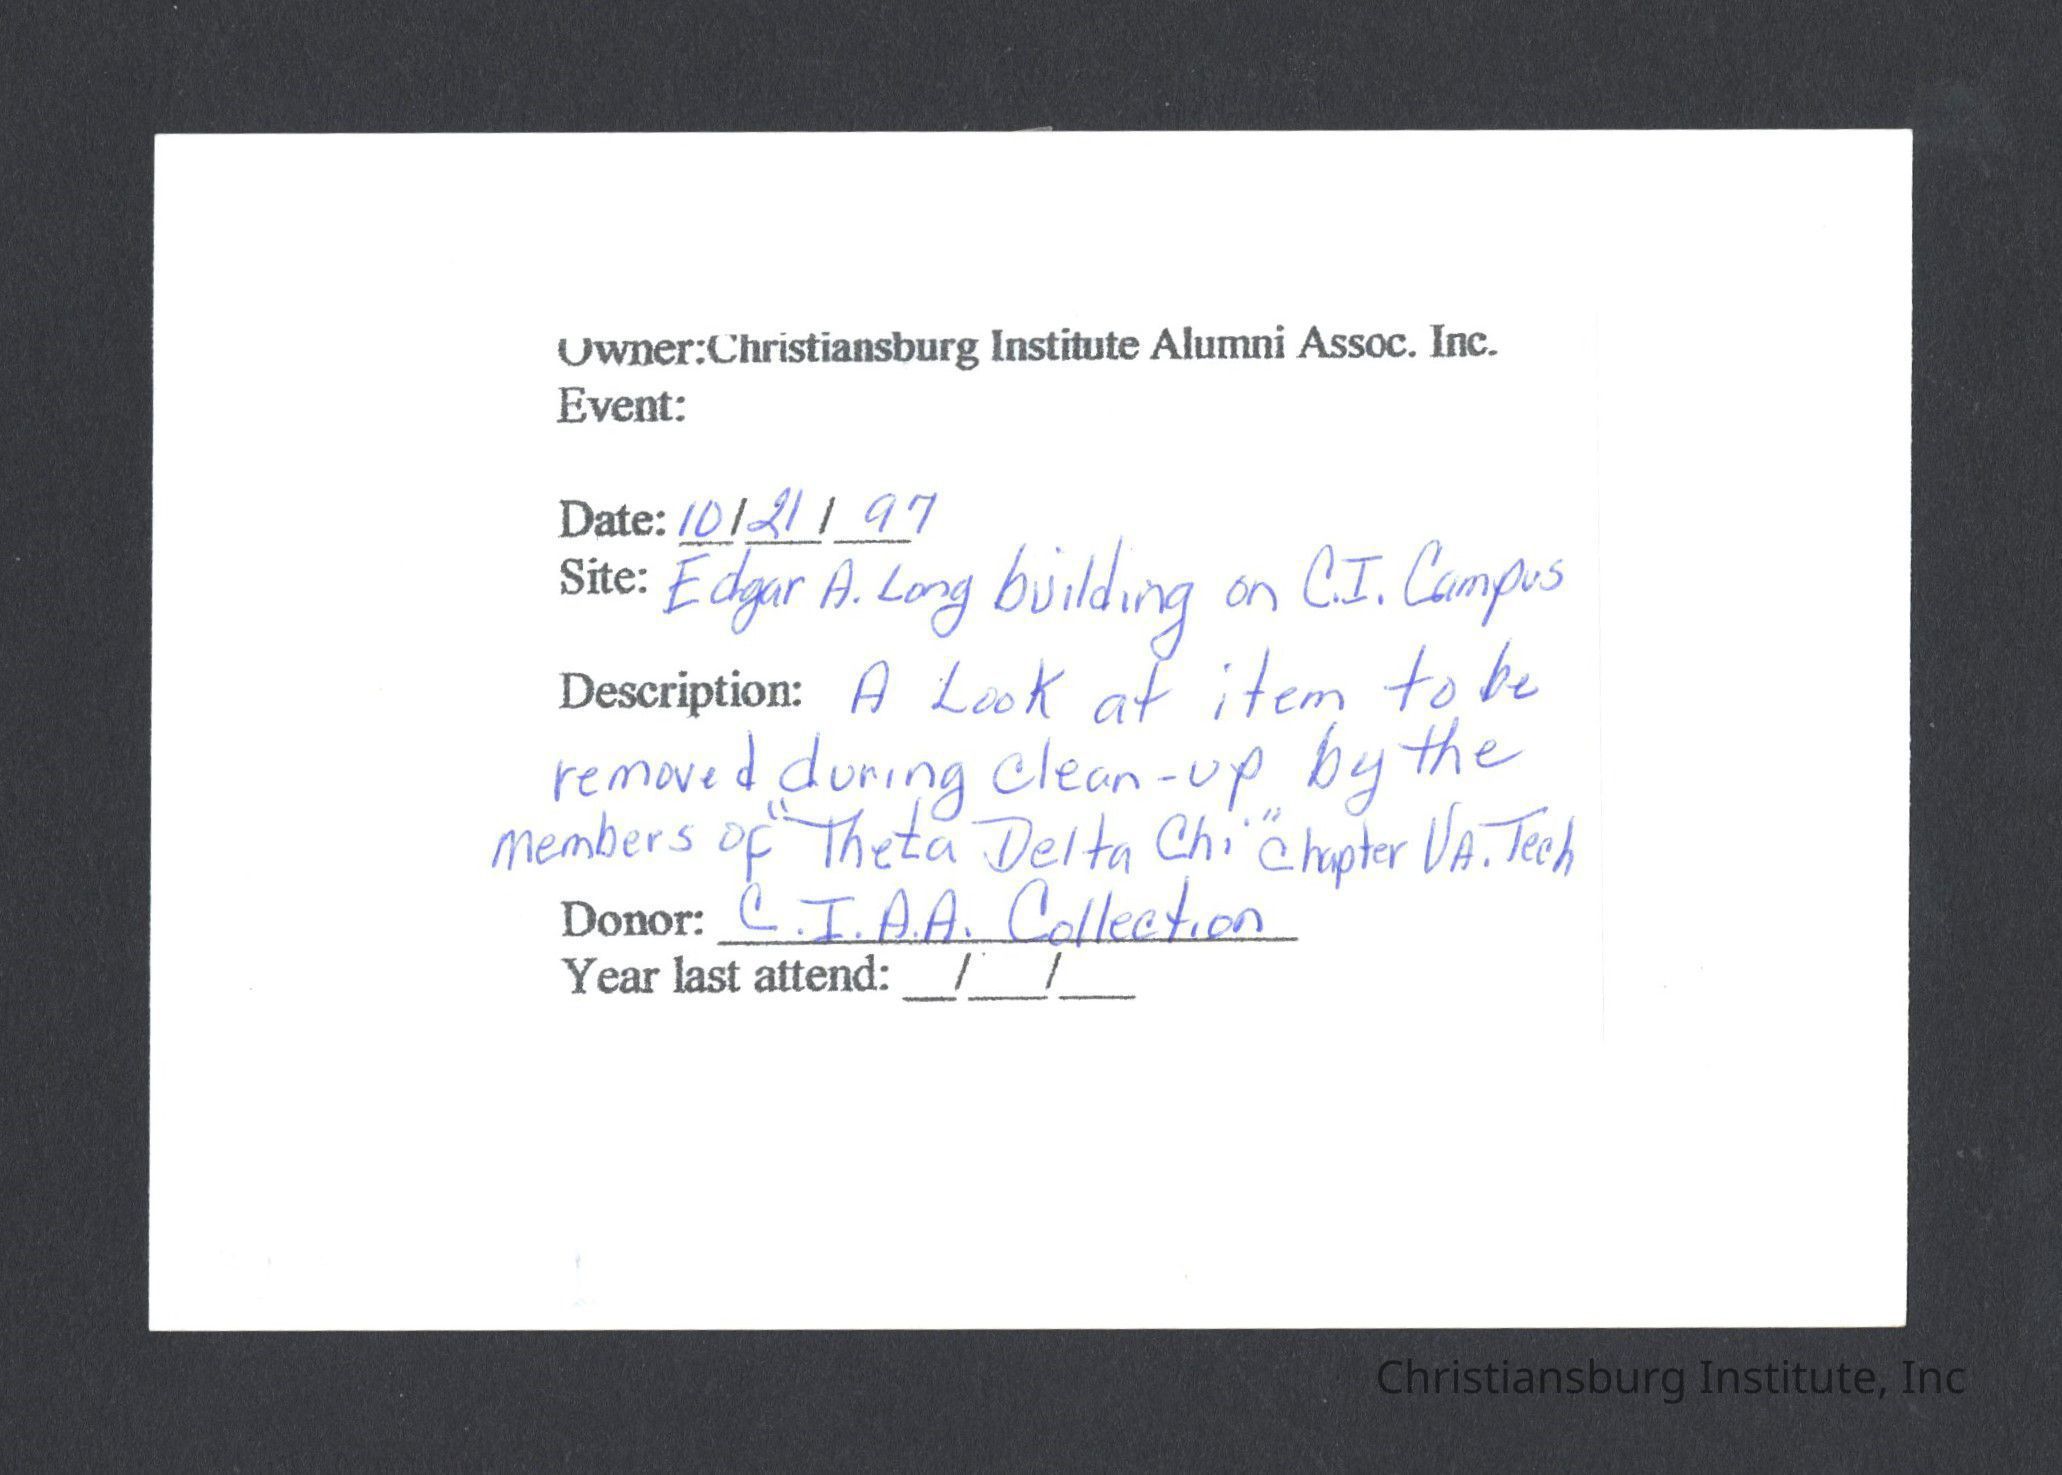 Owner:Christiansburg Institute Alumni Assoc. Inc.
Event:
Date: 10/21/97
Site: Edgar A. Long building on C.I. Campus
Description: A Look at item to be
removed during clean-up by the
members of "Theta Delta Chi" chapter VA. Tech
Donor: C.I.A.A. Collection
Year last attend: __/___/___
Christiansburg Institute, Inc